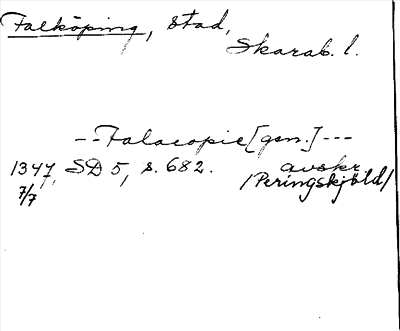 Falköping, stad,
Skarab. l.
-- Falacopie [gen.] ---
1347, SD 5, s. 682. avskr
7/7 /Peringskjöld/